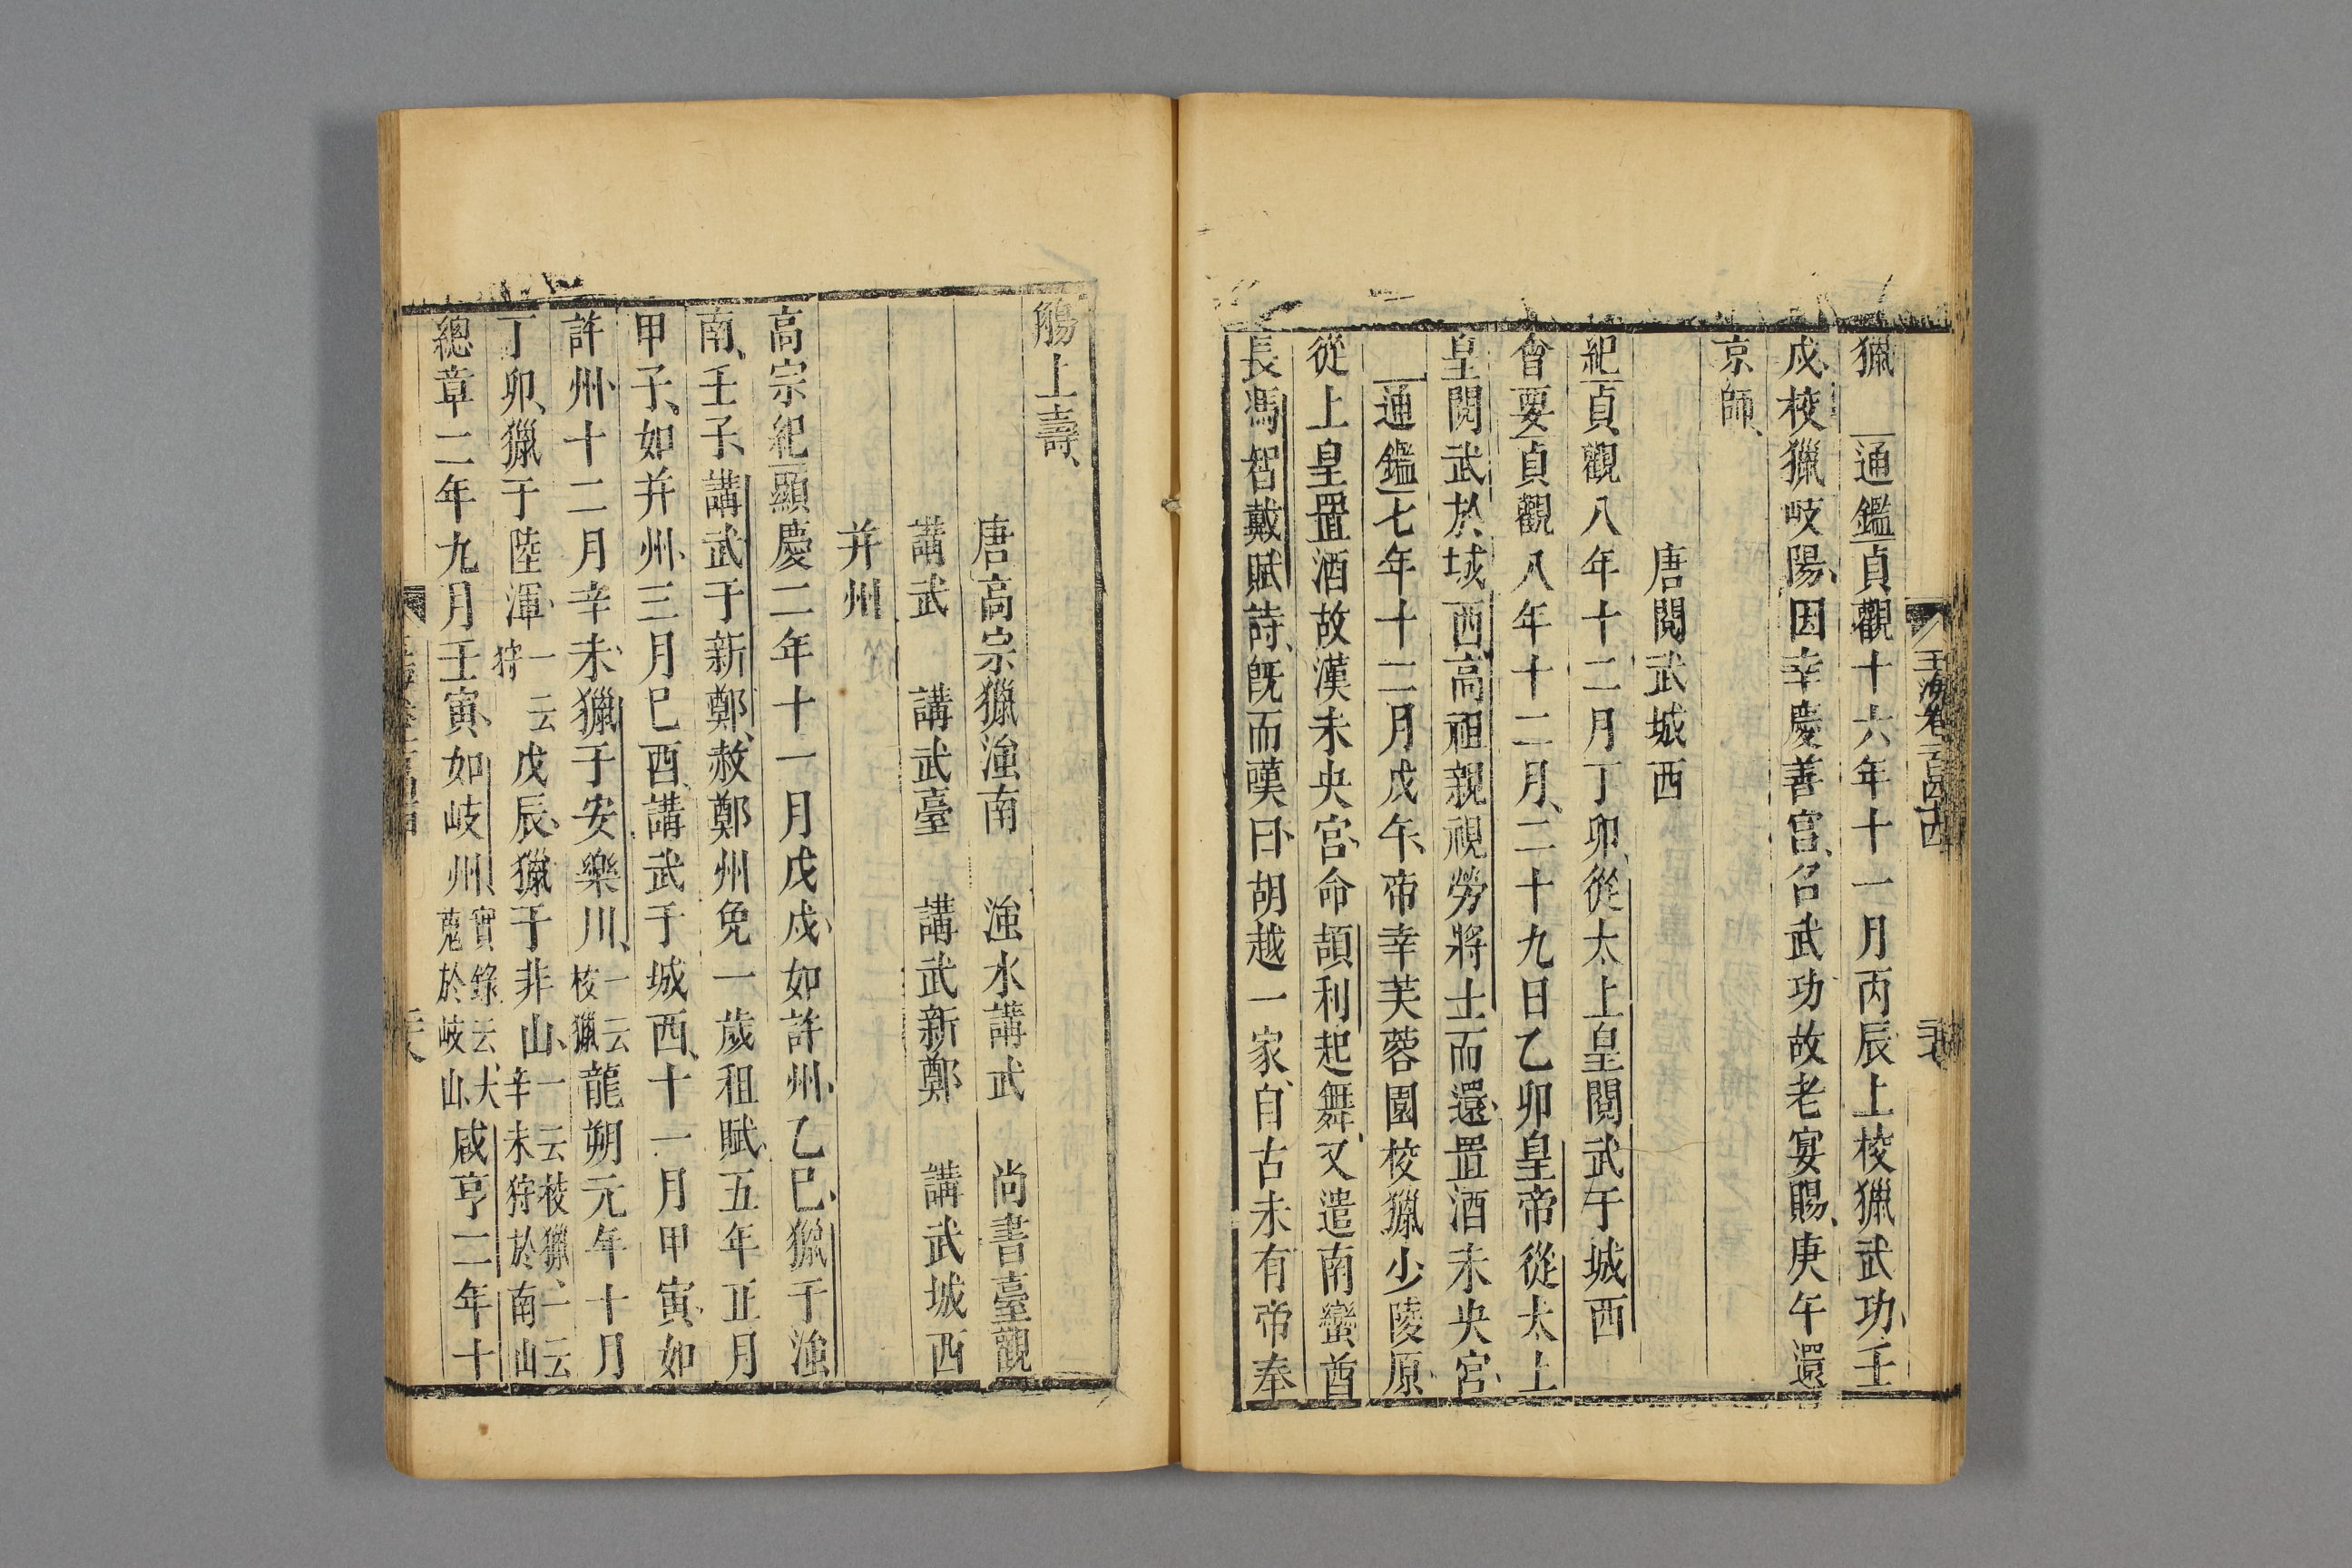 玉海卷一百四十四
獵　通鑑貞觀十六年十一月丙辰上校獵武功壬
戌校獵岐陽因幸慶善宮召武功故老宴賜庚午還
京師
唐閱武城西
紀貞觀八年十二月丁卯從太上皇閱武于城西
會要貞觀八年十二月二十九日乙卯皇帝從太上
皇閱武於城西高祖親視勞將士而還置酒未央宮
通鑑七年十二月戊午帝幸芙蓉園校獵少陵原
從上皇置酒故漢未央宮命頡利起舞又遣南蠻酋
長馮智戴賦詩旣而嘆曰胡越一家自古未有帝奉
觴上壽
唐高宗獵滍南　滍水講武　尚書臺觀
講武　講武臺　講武新鄭　講武城西
并州
高宗紀顯慶二年十一月戊戌如許州乙巳獵于滍
南壬子講武于新鄭赦鄭州免一歲租賦五年正月
甲子如并州三月己酉講武于城西十一月甲寅如
許州十二月辛未獵于安樂川一云校獵龍朔元年十月
丁卯獵于陸渾一云狩戊辰獵于非山一云校獵一云辛未狩於南山
總章二年九月壬寅如岐州實錄云大蒐於岐山咸亨二年十